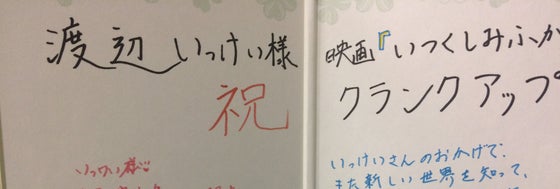 渡辺いっけい様
祝
いっけい様
映画『いつくしみふか
クランクアップ
いっけいさんのおかげで
また新しい世界を知って、